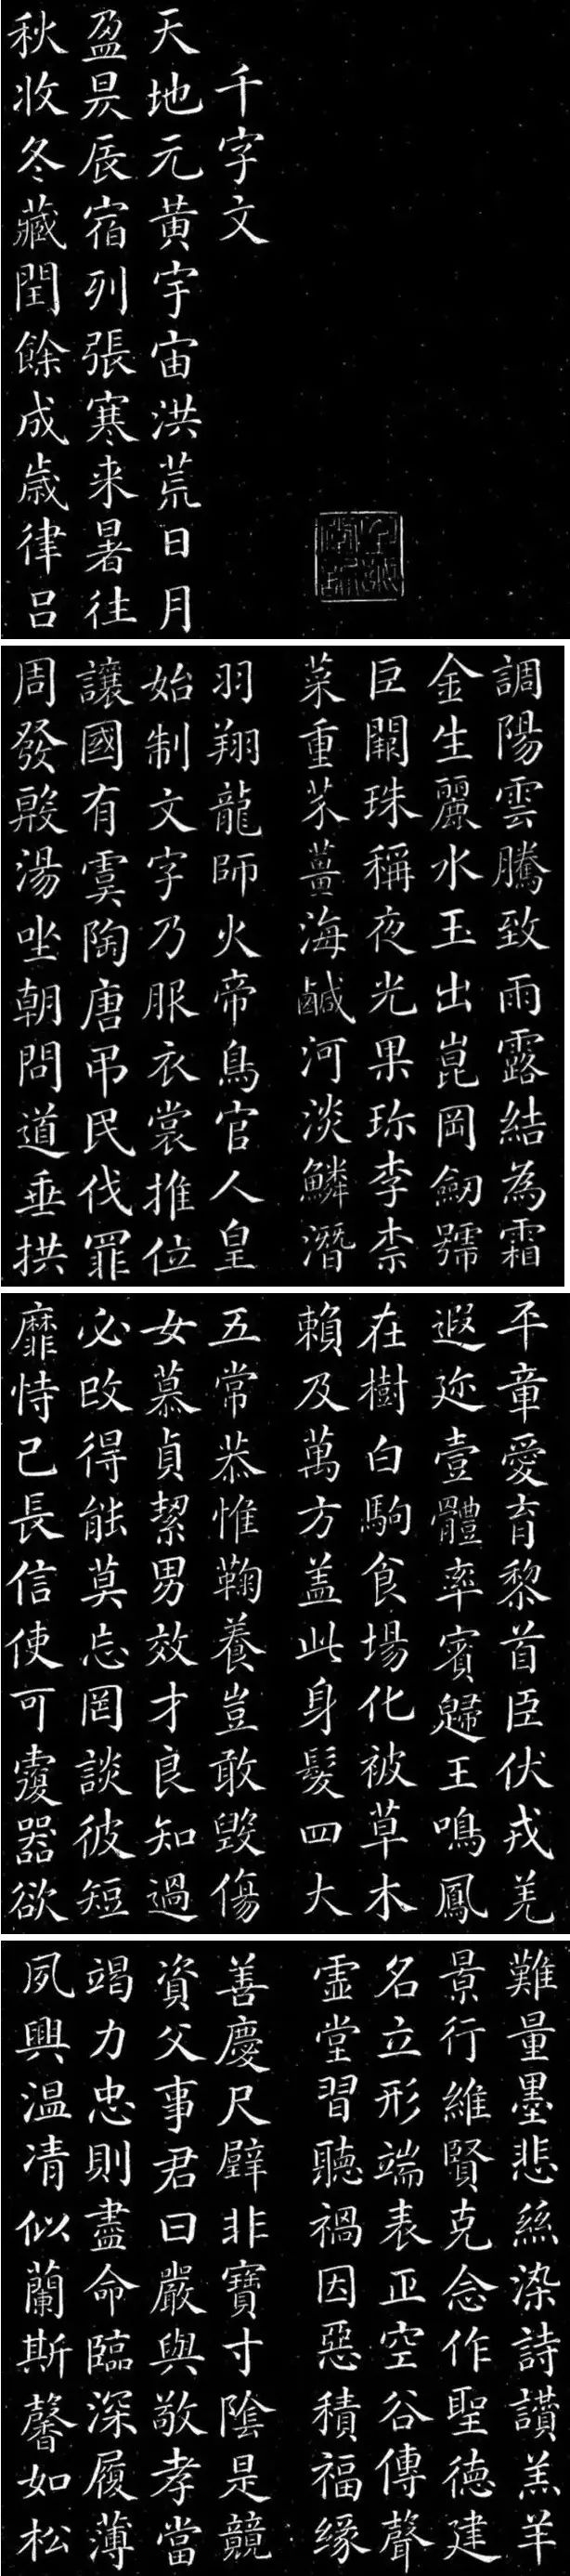 千字文
天地元黃宇宙洪荒日月
盈昃辰宿列張寒来暑往
秋收冬藏閏餘成歲律呂
調陽雲騰致雨露結為霜
金生麗水玉出崑岡劒號
巨闕珠稱夜光果珎李柰
菜重芥薑海鹹河淡鱗潛
羽翔龍師火帝鳥官人皇
始制文字乃服衣裳推位
讓國有虞陶唐吊民伐罪
周發殷湯坐朝問道垂拱
平章愛育黎首臣伏戎羌
遐迩壹體率賓歸王鳴鳳
在樹白駒食場化被草木
賴及萬方盖此身髮四大
五常恭惟鞠養豈敢毀傷
女慕貞絜男效才良知過
必改得能莫忘罔談彼短
靡恃己長信使可覆器欲
難量墨悲絲染詩讚羔羊
景行維賢克念作聖德建
名立形端表正空谷傳聲
虛堂習聽禍因惡積福緣
善慶尺璧非寶寸陰是競
資父事君曰嚴與敬孝當
竭力忠則盡命臨深履薄
夙興温凊似蘭斯馨如松